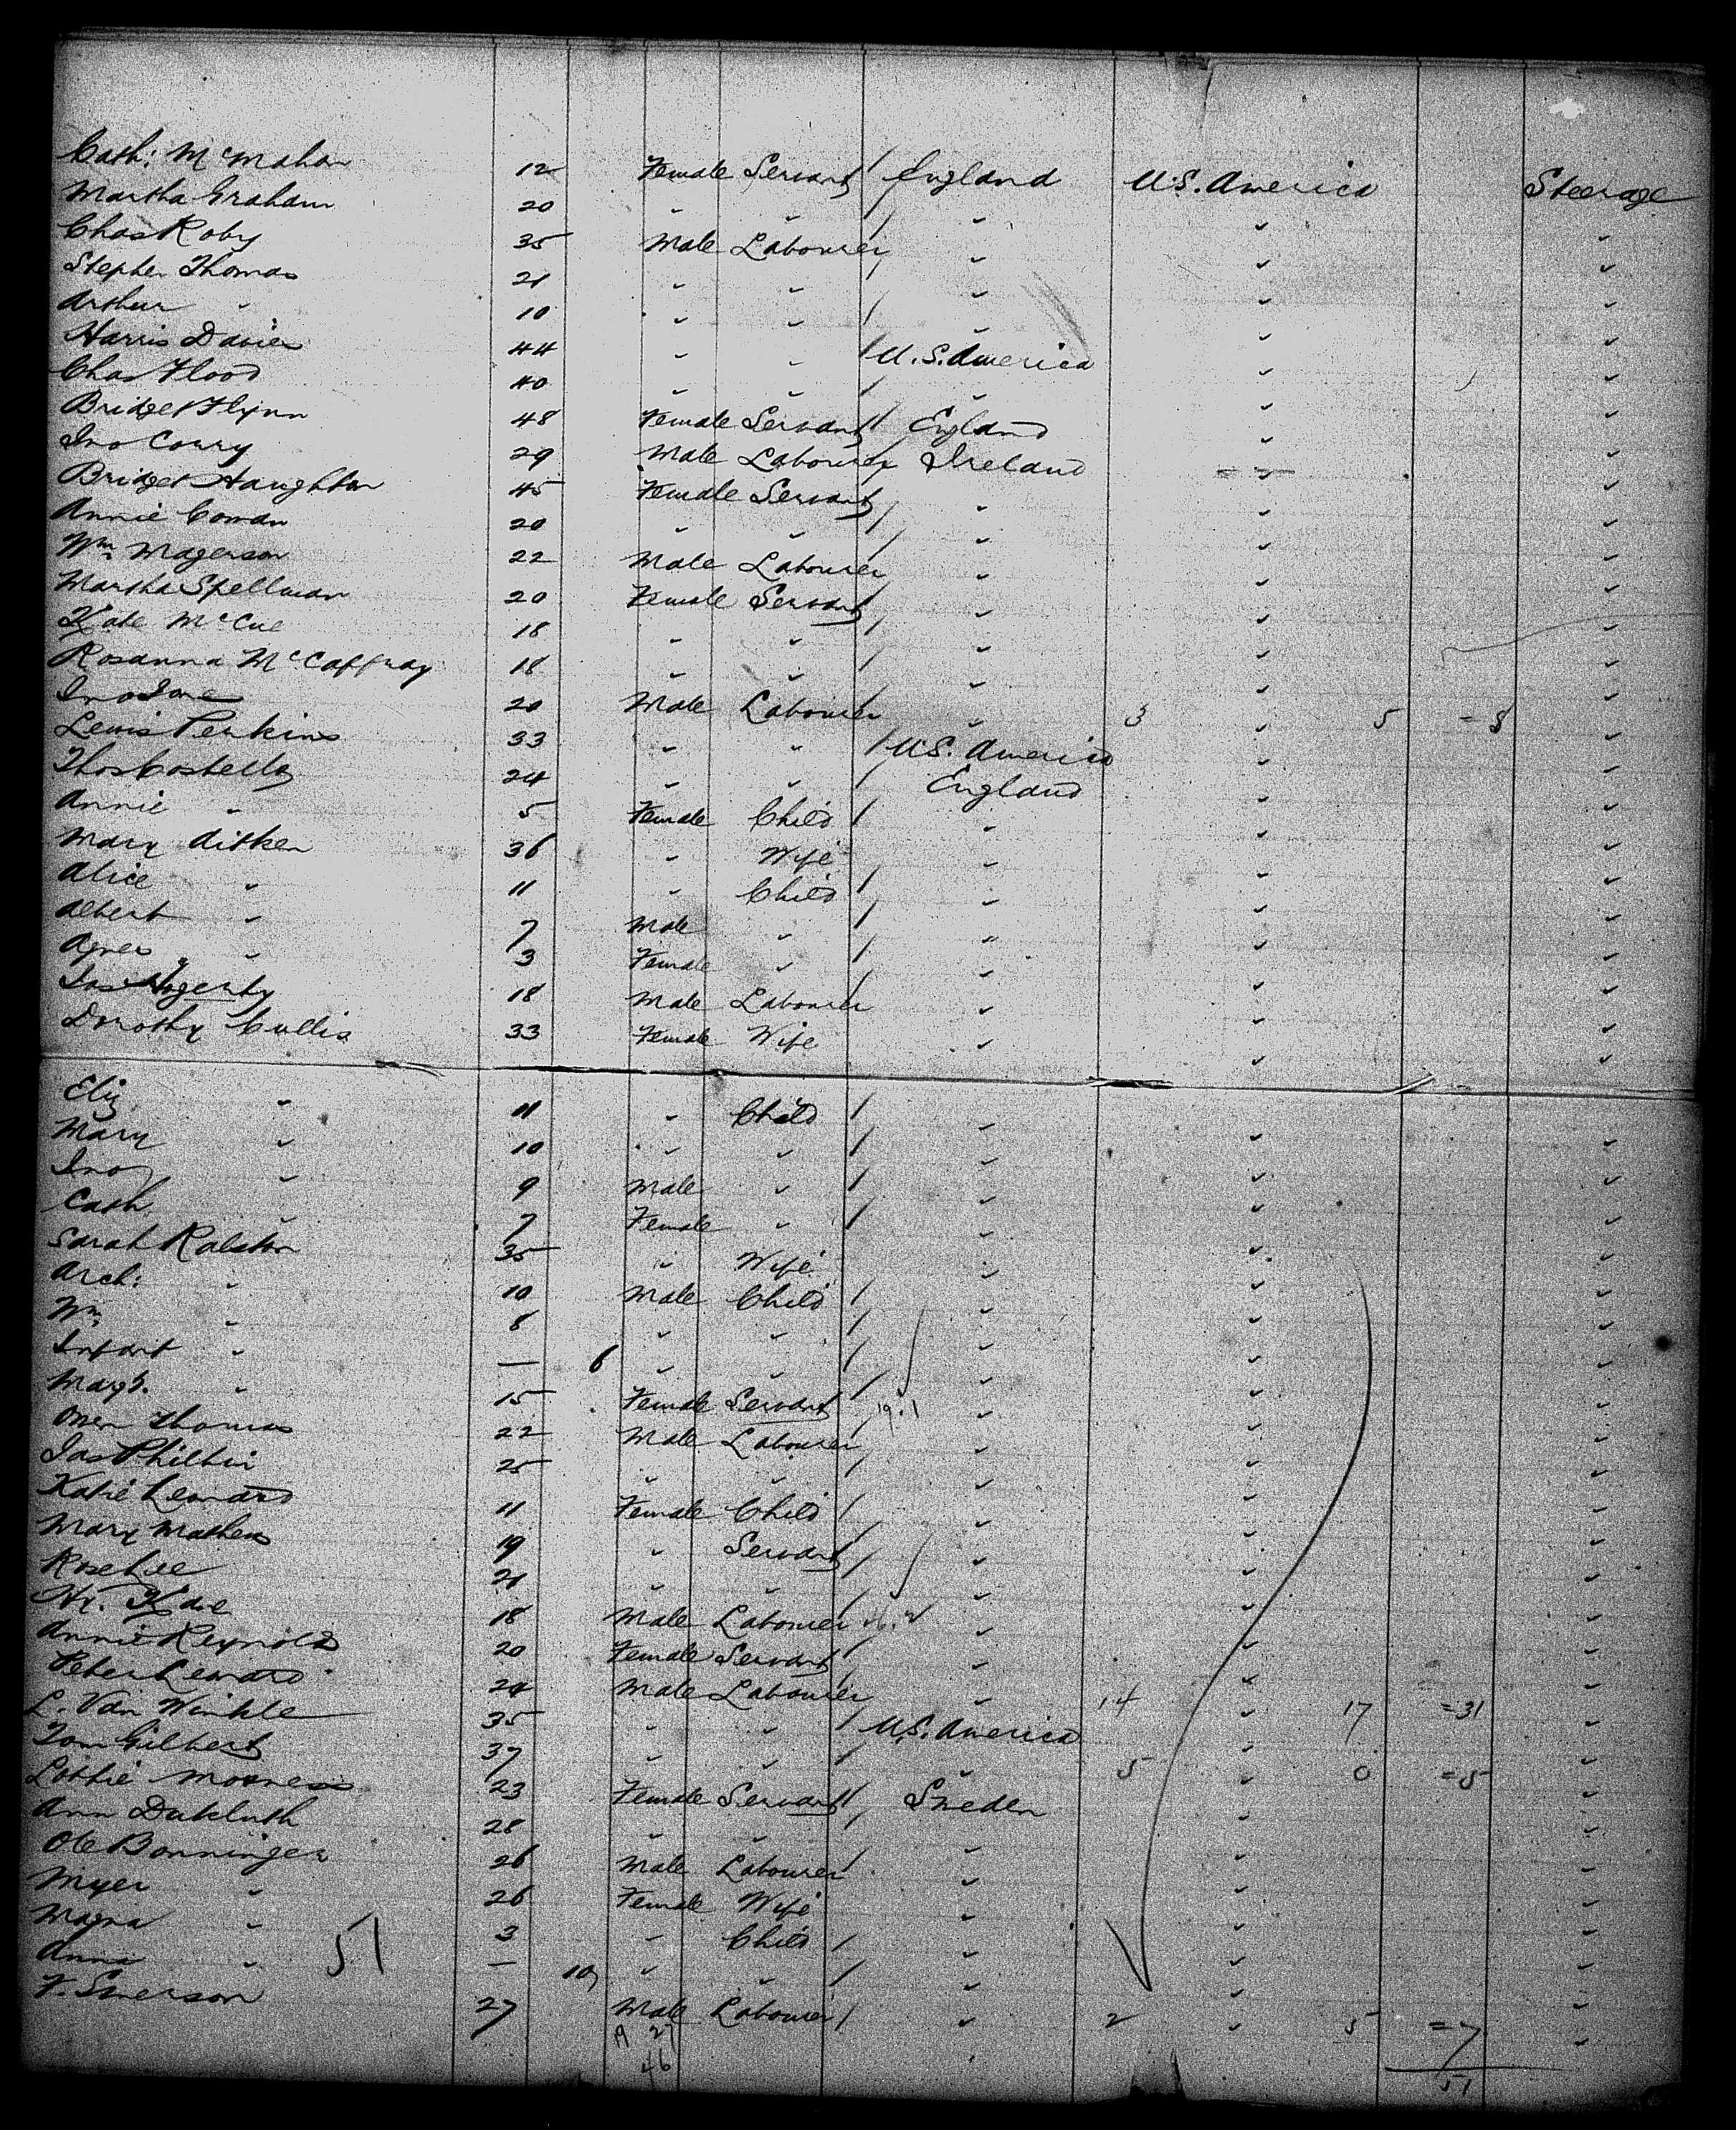 Cath: McMahon 12 Female Servant / England U.S. America Steerage
Martha Graham 20 " " / " " "
Chas Roby 35 Male Labourer / " " "
Stephen Thomas 21 " " / " " "
Arthur " 10 " " / " " "
Harris Davies 44 " " / U.S. America " "
Chas Flood 40 " " / " " "
Bridget Flynn 48 Female Servant / England " "
Jno Conry 29 Male Labourer Ireland " "
Bridget Haughton 45 Female Servant / " " "
Annie Cowan 20 " " / " " "
Wm Magerson 22 Male Labourer " " "
Martha Spellman 20 Female Servant / " " "
Kate McCue 18 " " / " " "
Rosanna McCaffray 18 " " / " " "
Jno 20 Male Labourer " 3 " 5 = 8 "
Lewis Perkins 33 " " / U.S. America " "
Thos Costello 24 " " / England " "
Annie " 5 Female Child / " " "
Mary Aitken 36 " Wife " " "
Alice " 11 " Child / " " "
Albert " 7 Male " / " " "
Agnes " 3 Female " / " " "
Jas Hogerty 18 Male Labourer " " "
Dorothy Cullis 33 Female Wife " " "
Eliz " 11 " Child / " " "
Mary " 10 " " / " " "
Jno " 9 Male " / " " "
Cath " 7 Female " / " " "
Sarah Ralston 35 " Wife " " "
Arch: " 10 Male Child / " " "
Wm " 8 " " / " " "
Infant " — 6 " " / " " "
Margt. " 15 Female Servant / " " "
Owen Thomas 22 Male Labourer " " "
Jas Philbin 25 " " / " " "
Katie Lenard 11 Female Child / " " "
Mary Mathews 19 " Servant / " " "
Rose Lee 21 " " / " " "
Hy. Kane 18 Male Labourer / " " "
Annie Reynolds 20 Female Servant / " " "
Peter Lenard 24 Male Labourer " 14 " 17 = 31 "
L. Van Winkle 35 " " / U.S. America " "
Tom Gilbert 37 " " / " 5 " 0 = 5 "
Lottie 23 Female Servant / Sweden " "
Ann 28 " " / " " "
Ole Bonninger 26 Male Labourer " " "
Myer " 26 Female Wife " " "
Magna " 3 " Child / " " "
Anna " 51 — 10 " " / " " "
F. 27 Male Labourer / " 2 " 5 = 7 "
19 27
46
51